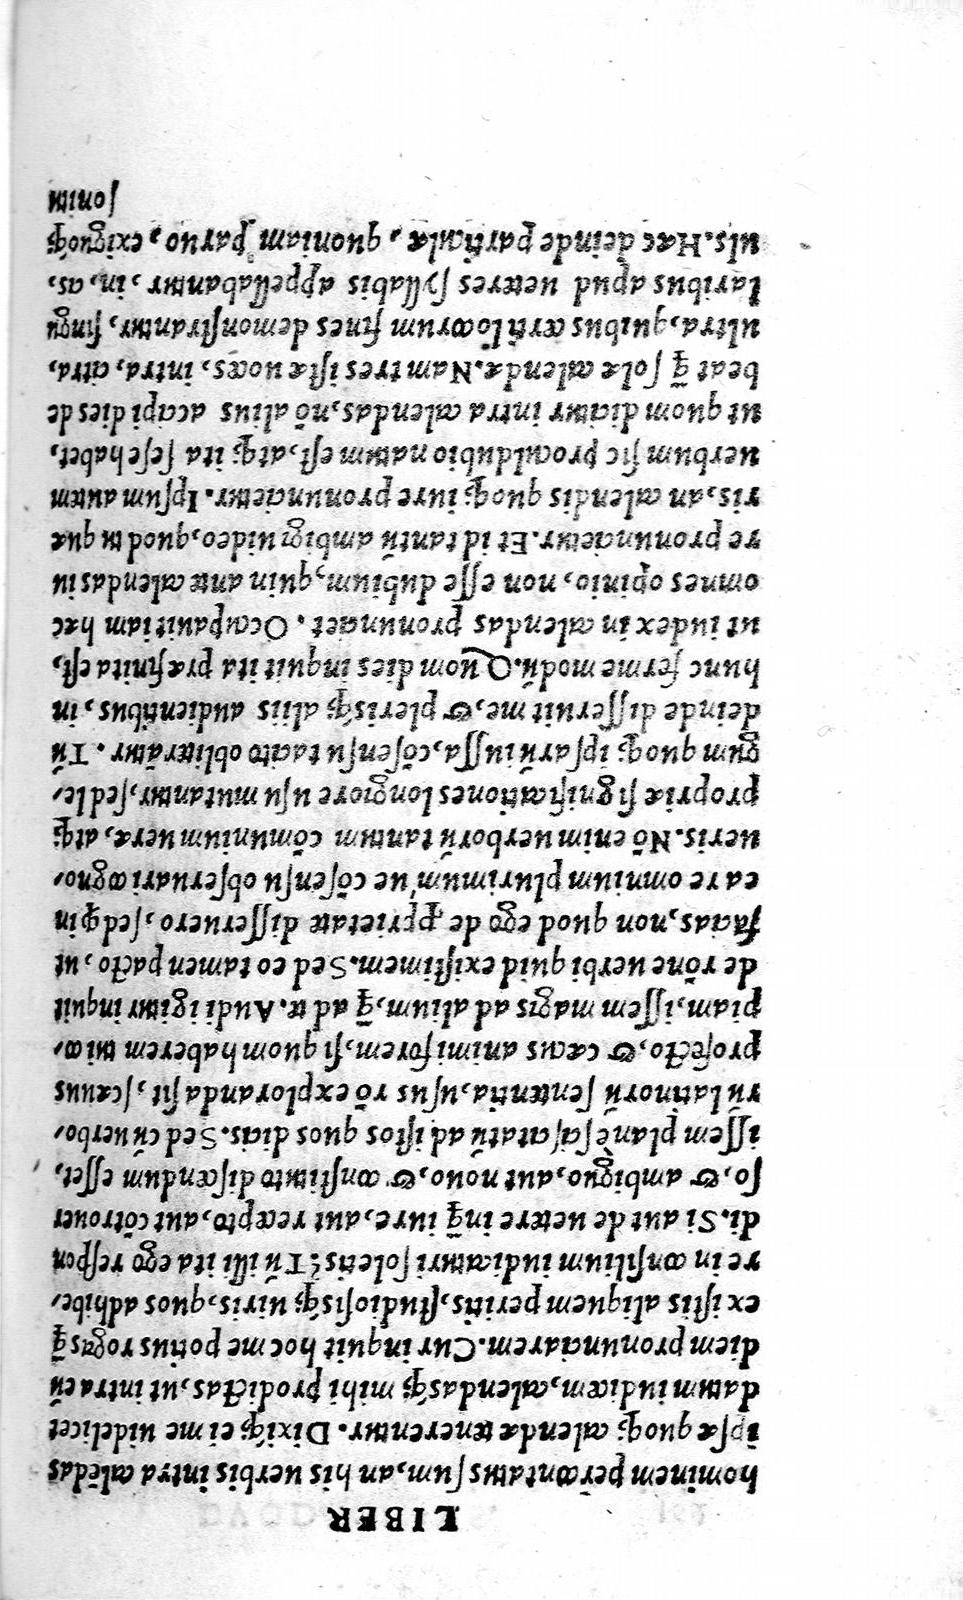 LIBER
hominem percontatus sum, an his uerbis intra calēdas
ipsæ quoq; calendæ tenerentur. Dixiq; ei me uidelicet
datum iudicem, calendasq; mihi prodictas, ut intra eū
diem pronunciarem. Cur inquit hoc me potius rogas q̄
ex istis aliquem peritis, studiosisq; uiris, quos adhibe/
re in consilium iudicaturi soletis? Tū illi ita ego respon
di. Si aut de uetere inq̄ iure, aut recepto, aut cōtrouer
so, & ambiguo, aut nouo, & constituto discendum esset,
issem planè sciscitatū ad istos quos dicis. Sed cū uerbo/
rū latinorū sententia, usus rō exploranda sit, scæuus
profecto, & cæcus animi forem, si quom haberem tui co/
piam, issem magis ad alium, q̄ ad te. Audi igitur inquit
de rōne uerbi quid existimem. Sed eo tamen pacto, ut
facias, non quod ego de ꝓprietate disseruero, sed qđ in
ea re omnium plurimum, ue cōsensu obseruari cogno/
ueris. Nō enim uerborū tantum cōmunium ueræ, atq;
propriæ significationes longiore usu mutantur, sed le/
gum quoq; ipsarū iussa, cōsensu tacito obliterātur. Tū
deinde disseruit me, & plerisq; aliis audientibus, in
hunc ferme modū. Quom dies inquit ita præfinita est,
ut iudex in calendas pronunciet. Occupauit iam hæc
omnes opinio, non esse dubium, quin ante calendas iu
re pronuncietur. Et id tantū ambigi uideo, quod tu quæ
ris, an calendis quoq; iure pronuncietur. Ipsum autem
uerbum sic proculdubio natum est, atq; ita sese habet,
ut quom dicitur intra calendas, nō alius accipi dies de
beat q̄ solæ calendæ. Nam tres istæ uoces, intra, citra,
ultra, quibus certi locorum fines demonstrantur, singu
laribus apud ueteres syllabis appellabantur, in, as,
uls. Hæc deinde particulæ, quoniam paruo, exiguoq;
sonitu